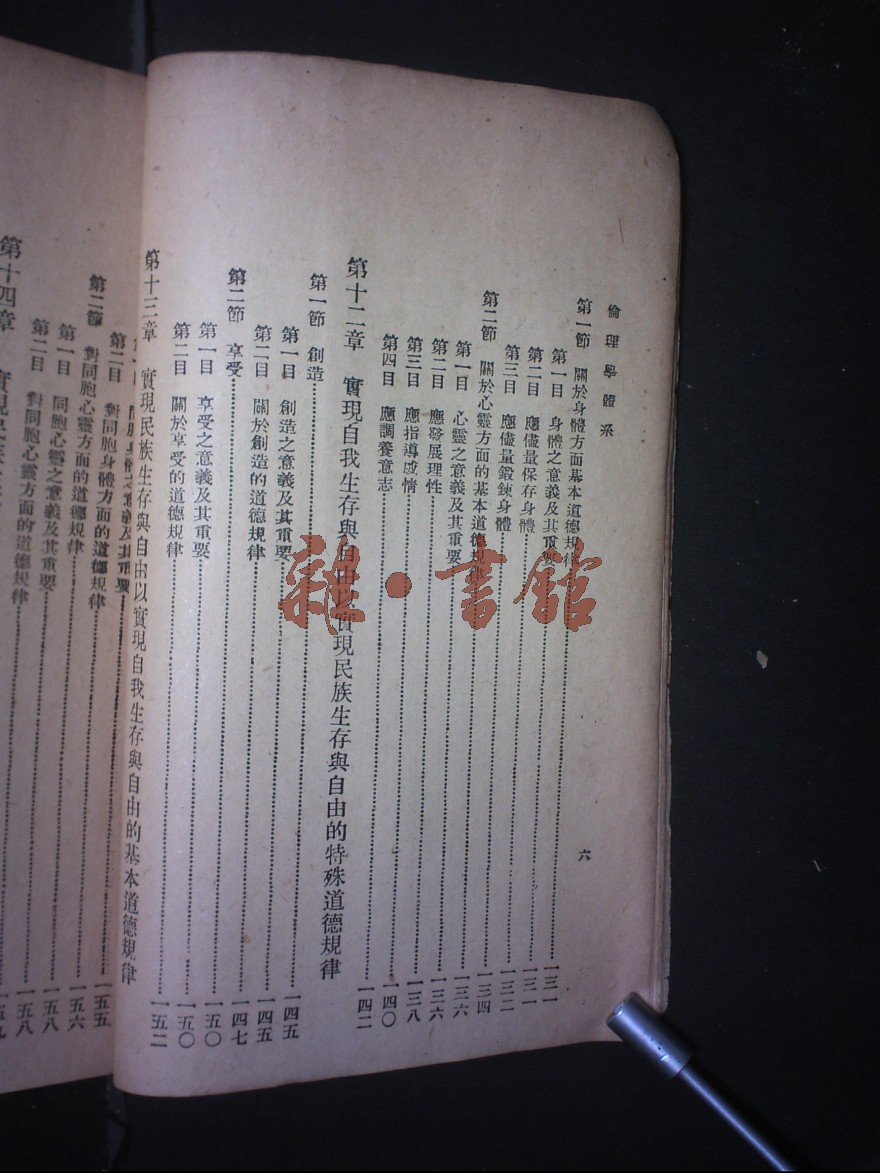 倫理學體系 六
第一節 關於身體方面基本道德規律 一三一
第一目 身體之意義及其重要 一三一
第二目 應儘量保存身體 一三二
第三目 應儘量鍛鍊身體 一三四
第二節 關於心靈方面的基本道德規律 一三六
第一目 心靈之意義及其重要 一三六
第二目 應發展理性 一三八
第三目 應指導感情 一四〇
第四目 應調養意志 一四二
第十二章 實現自我生存與自由以實現民族生存與自由的特殊道德規律
第一節 創造 一四五
第一目 創造之意義及其重要 一四五
第二目 關於創造的道德規律 一四七
第二節 享受 一五〇
第一目 享受之意義及其重要 一五〇
第二目 關於享受的道德規律 一五二
第十三章 實現民族生存與自由以實現自我生存與自由的基本道德規律
身體之意義及其重要 一五五
第二目 對同胞身體方面的道德規律 一五六
第二節 對同胞心靈方面的道德規律 一五八
第一目 同胞心靈之意義及其重要 一五八
第二目 對同胞心靈方面的道德規律
第十四章 實現
雜·書館